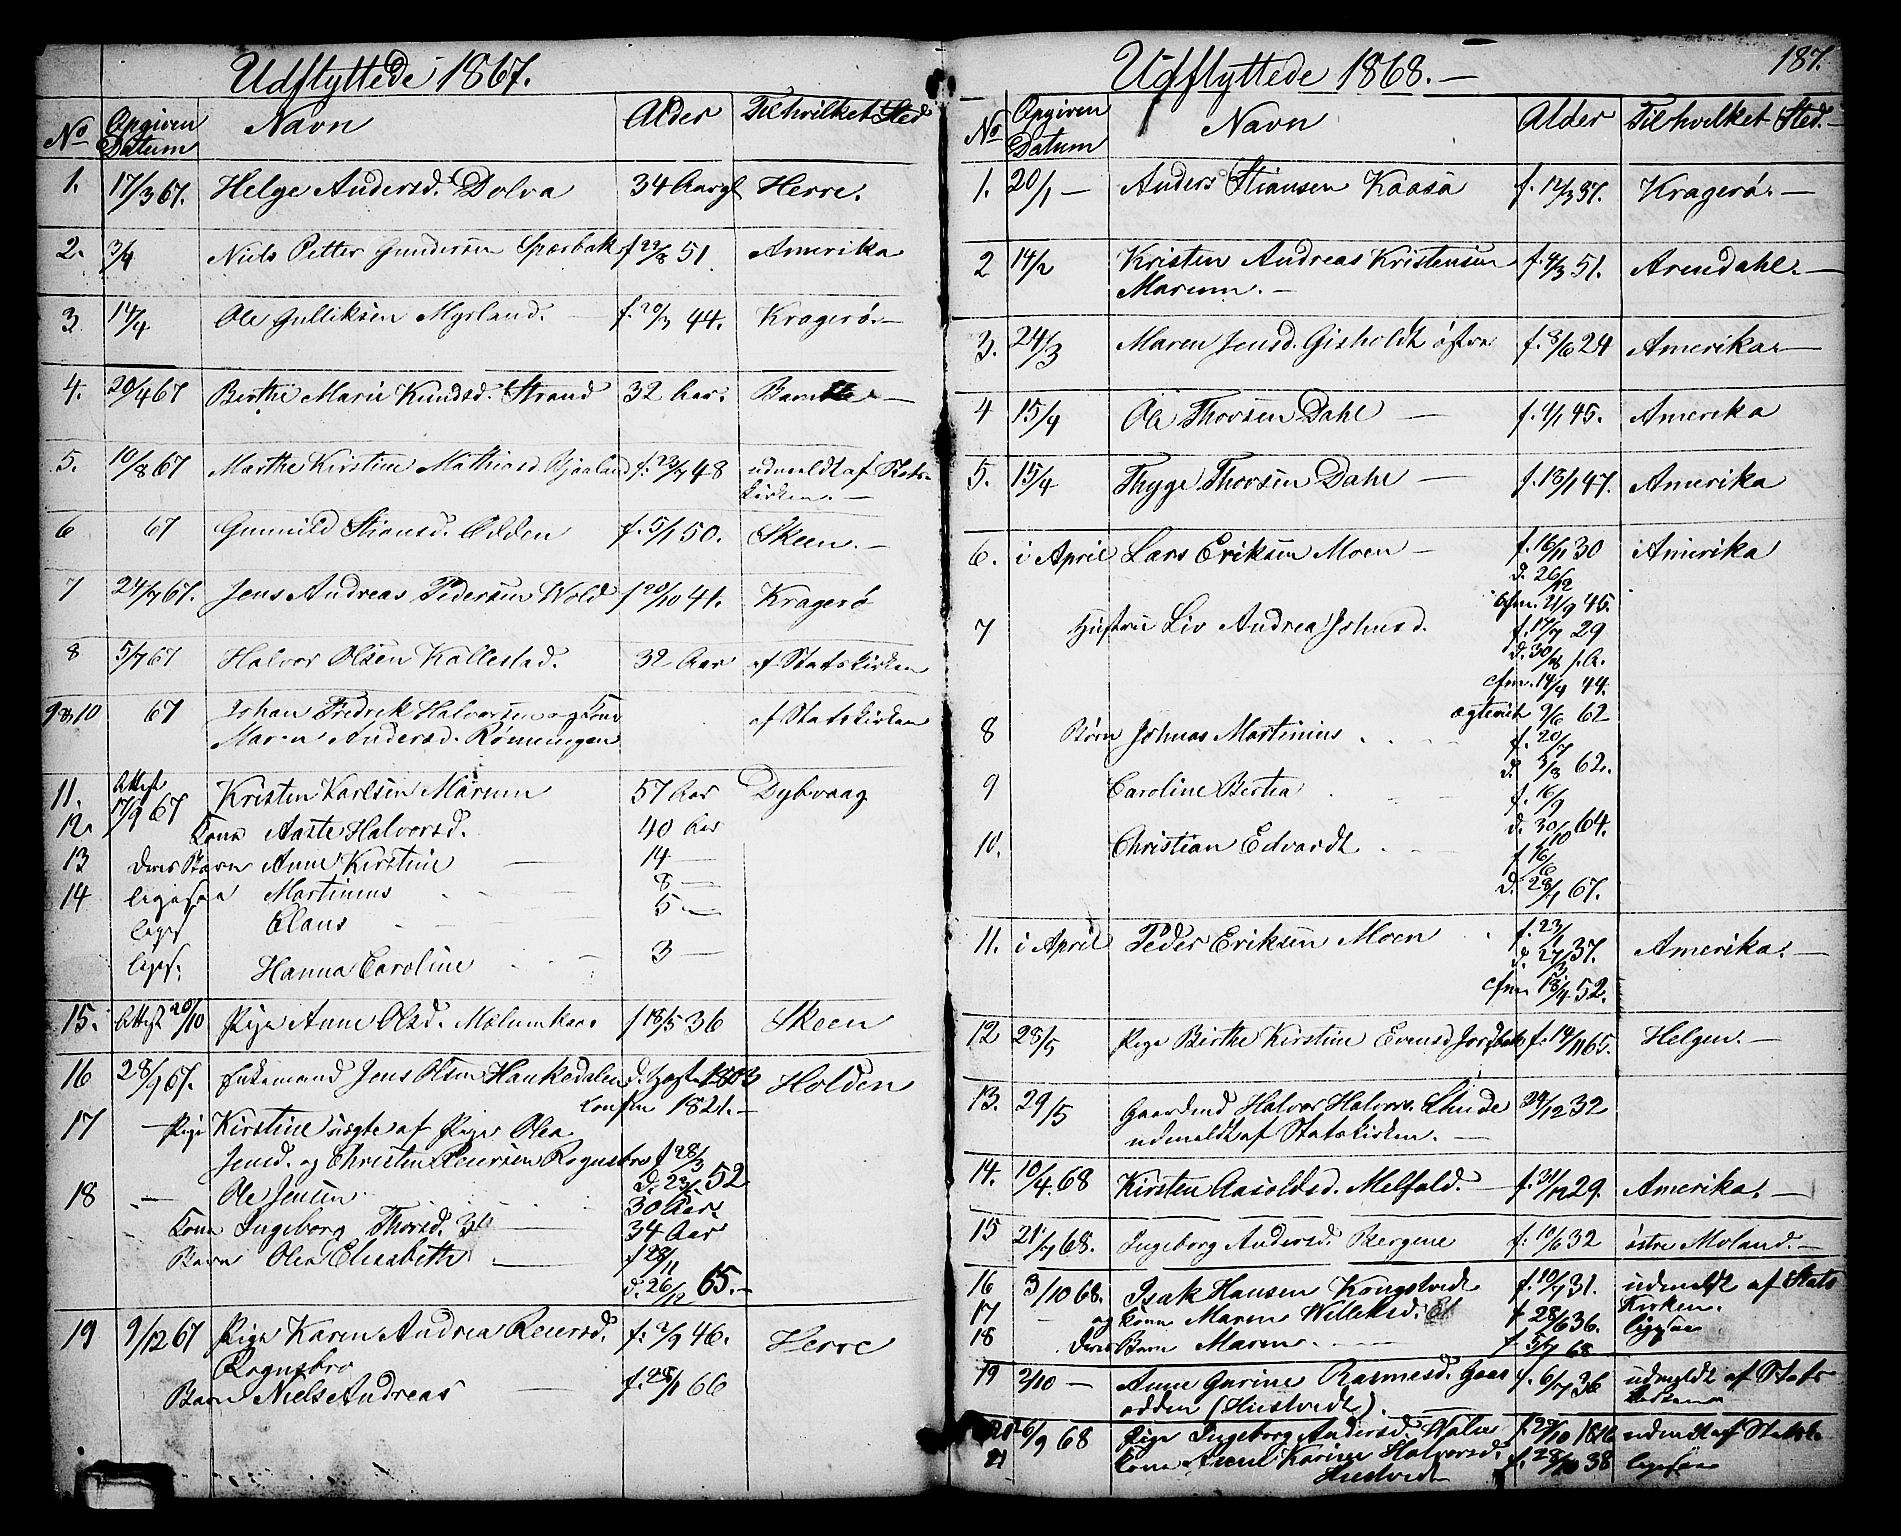 Udflyttede 1867.
No Opgiven Datum Navn Alder Til hvilket Sted
1. 17/3 67. Helge Andersd. Dolva 34 Aar gl Herre.
2. 3/4 Niels Petter Gundersen Sperbak f 22/8 51. Amerika
3 14/4 Ole Gulliksen Myrland. f. 20/3 44. Kragerø.
4. 20/4 67 Berthe Marie Knudsd. Strand 32 Aar. Bamble
5. 10/8 67 Marthe Kirstine Mathiasd. f. 23/7 48 udmeldt af Stats-
kirken.
6 67 Gunnild Stiansd. Odden f. 5/1 50. Skeen.
7 24/7 67. Jens Andreas Pedersen Wold f 20/10 41. Kragerø
8 5/7 67 Halvor Olsen Kallestad. 32 Aar af Statskirken
9 & 10 67 Johan Fredrik Halvorsen og Kone af Statskirken
Maren Andersd. Rønningen
11. Attest 17/9 67 Kristen Karlsen Marum 57 Aar Dybvaag
12. Kone Aaste Halvorsd. 40 Aar
13 deres Børn Anne Kirstine 14
14 ligesaa Martinus 8
liges Claus 5
liges. Hanna Caroline 3
15. Attest 20/10 Pige Anne Olsd. Mælumkaas f 18/5 36 Skeen
16 28/9 67. Enkemand Jens Olsen Haukedalen d. 1803 Holden
Confm 1821.
17 Pige Kirstine uægte af Pige Olea
Jensd. og Christen Reiersen Rognsbro f 28/3
d. 23/5 52
18 Ole Jensen 30 Aar.
Kone Ingeborg Thorsd. 34 34 Aar
Barn Olea Elisabeth f 28/11
d. 26/12 65.
19 9/12 67 Pige Karen Andrea Reiersd. f. 2/9 46. Herre
Rognsbro
Barn Niels Andreas f. 28/1 66
187.
Udflyttede 1868.
No Opgiven Datum Navn Alder Til hvilket Sted.
1. 20/1 Anders Stiansen Kaasa f. 12/3 37. Kragerø.
2 14/2 Kristen Andreas Kristensen f. 4/3 51. Arendahl.
Marum.
3. 24/3 Maren Jensd. Gisholdt østre f. 8/6 24 Amerika
4 15/4 Ole Thorsen Dahl f. 4/1 45. Amerika
5. 15/4 Thyge Thorsen Dahl f. 18/1 47. Amerika
6. i April Lars Eriksen Moen f. 16/11 30 Amerika
d. 26/12
cfm. 21/9 45.
7 Hustru Liv Andrea Johnsd. f. 17/7 29
d. 30/8 s. A.
cfm. 14/4 44.
ægteviet 9/6 62
8 Børn Johnas Martinius f. 20/7
d. 3/8 62.
9 Caroline Bertea f. 16/9
d. 30/10 64.
10. Christian Edvardt f. 16/6
d. 28/7 67.
11. i April Peder Eriksen Moen f. 23/1
d. 27/3 37. Amerika.
cfm 18/4 52.
12 28/5 Pige Birthe Kirstine Evensd f. 14/11 65. Helgen.
13. 29/5 Gaardmd Halvor Halvors. 24/12 32
udmeldt af Statskirken.
14. 10/4. 68 Kirsten Aasoldsd. Melfald. f. 31/12 29. Amerika.
15 21/7 68. Ingeborg Andersd. Bergene f. 10/6 32 østre Moland.
16 3/10 68. Isak Hansen Kongstvedt f. 10/7 31. udmeldt af Stats
Kirken.
17 og kone Maren Willeksd. f 28/6 36. ligesaa
18 deres Barn Maren f. 5/7 68
19 2/10 Anne Gurine Rasmusd. Gaas f. 6/7 36 udmeldt af Stats
odden (Hustvedt).
20 26/9 68 Pige Ingeborg Andersd. f. 29/10 1816 udmeldt af Statsk.
21 Kone Karine Halvorsd. f. 28/10 38 ligesaa
Hustvedt